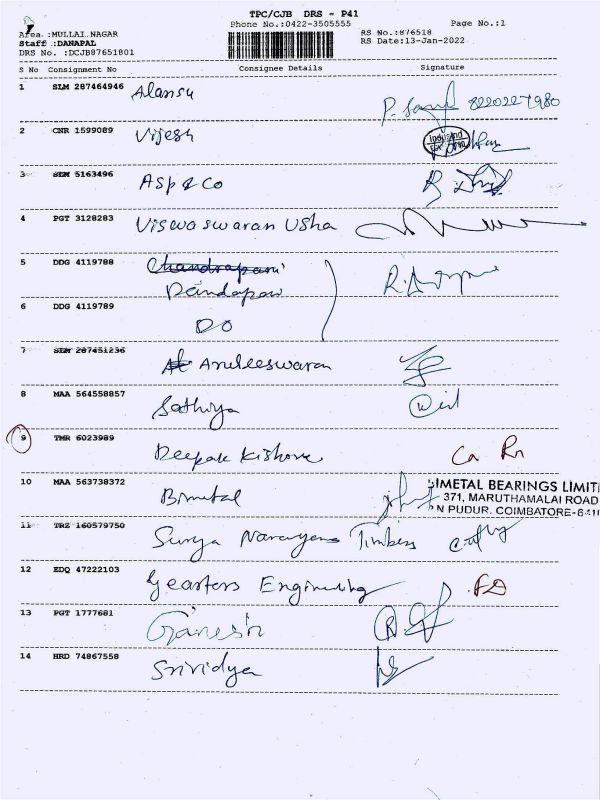 TPC/CJB DRS - P41
Phone No.:0422-3505555 Page No.:1
Area :MULLAI NAGAR RS No.:876518
Staff :DANAPAL RS Date:13-Jan-2022
DRS No. :DCJB87651801
S No Consignment No Consignee Details Signature
1 SLM 287464946 Alansu
8220227980
2 CNR 1599089 Vijesh
3 SLM 5163496 Asp & Co
4 PGT 3128283 Viswaswaran Usha
5 DDG 4119788 Chandrapani
Dandapani
6 DDG 4119789 DO
7 SLM 287451236 Arulleeswaran
8 MAA 564558857 Sathiya
9 TMR 6023989 Deepak Kishore Ca Rn
10 MAA 563738372 Bimetal
IMETAL BEARINGS LIMIT
371, MARUTHAMALAI ROAD
N PUDUR, COIMBATORE-641
11 TRZ 160579750 Surya Narayana Timbers
12 EDQ 47222103 Geartors Engineering FD
13 PGT 1777681 Ganesh
14 HRD 74867558 Srividya